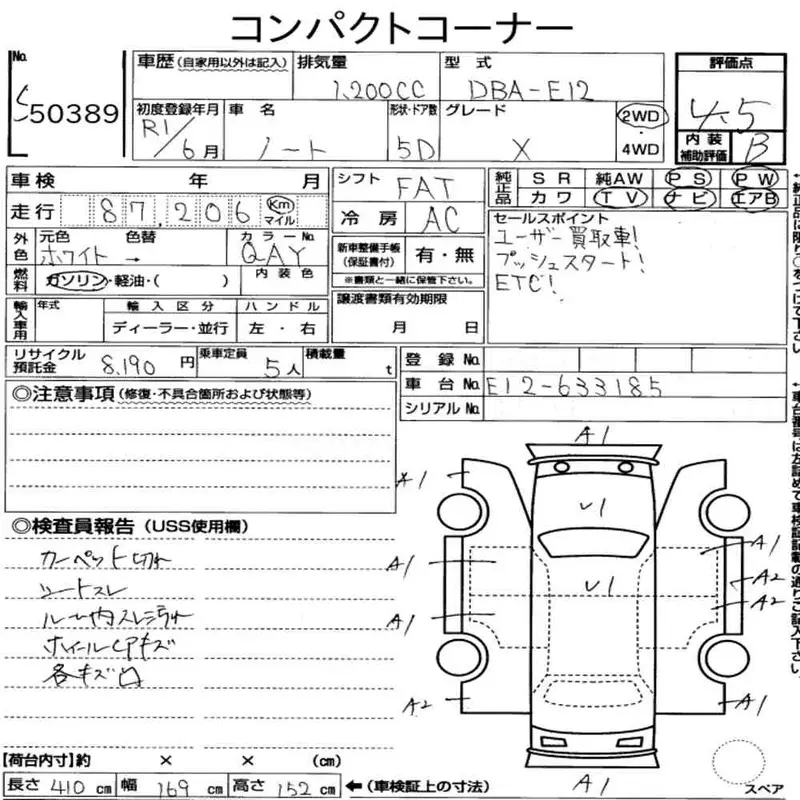 コンパクトコーナー
No.
50389
車歴 (自家用以外は記入)
排気量 1,200CC
型式 DBA-E12
評価点 4.5
初度登録年月 R1/6月
車名 ノート
形状・ドア数 5D
グレード X
2WD
4WD
内装補助評価 B
車検 年 月
シフト FAT
純正品 SR 純AW PS PW
カワ TV ナビ エアB
走行 87,206 Km マイル
冷房 AC
セールスポイント
ユーザー買取車!
プッシュスタート!
ETC!
外色 元色 色替 カラーNo.
ホワイト → QAY
新車整備手帳(保証書付) 有・無
※書類と一緒に保管下さい。
燃料 ガソリン・軽油・( ) 内装色
輸入車用 年式 輸入区分 ハンドル
ディーラー・並行 左・右
譲渡書類有効期限
月 日
リサイクル預託金 8,190 円
乗車定員 5人
積載量 t
登録No.
車台No. E12-633185
シリアルNo.
◎注意事項 (修復・不具合箇所および状態等)
◎検査員報告 (USS使用欄)
カーペット切れ
シートスレ
ルーフ内スレ汚れ
ホイールCAPキズ
各キズ凹
A1
A1
U1
A1
A1
A2
U1
A2
A1
A2
A1
A1
スペア
【荷台内寸】約 × × (cm)
長さ 410 cm 幅 169 cm 高さ 152 cm ←(車検証上の寸法)